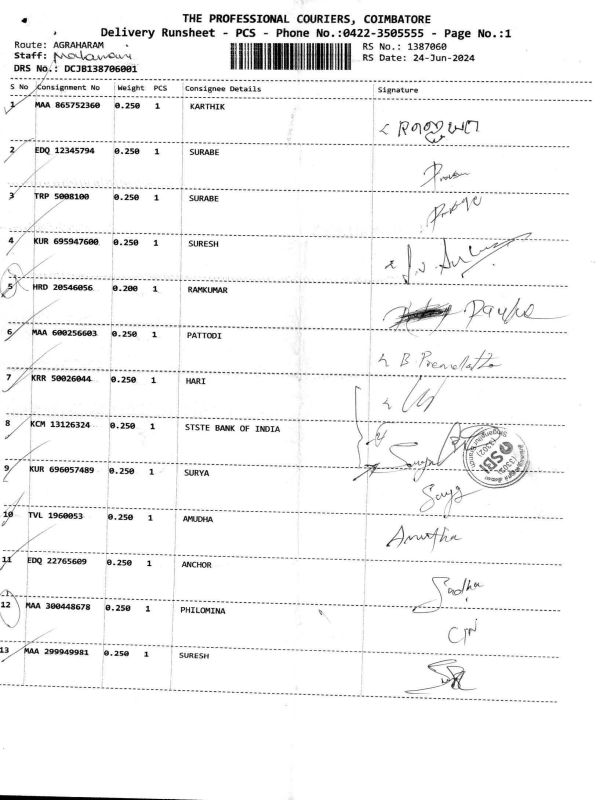 THE PROFESSIONAL COURIERS, COIMBATORE
Delivery Runsheet - PCS - Phone No.:0422-3505555 - Page No.:1
Route: AGRAHARAM RS No.: 1387060
Staff: RS Date: 24-Jun-2024
DRS No.: DCJB138706001
S No Consignment No Weight PCS Consignee Details Signature
1 MAA 865752360 0.250 1 KARTHIK
2 EDQ 12345794 0.250 1 SURABE
3 TRP 5008100 0.250 1 SURABE
4 KUR 695947600 0.250 1 SURESH
5 HRD 20546056 0.200 1 RAMKUMAR
6 MAA 600256603 0.250 1 PATTODI
7 KRR 50026044 0.250 1 HARI
8 KCM 13126324 0.250 1 STSTE BANK OF INDIA
SBI
9 KUR 696057489 0.250 1 SURYA
10 TVL 1960053 0.250 1 AMUDHA
11 EDQ 22765609 0.250 1 ANCHOR
12 MAA 300448678 0.250 1 PHILOMINA
13 MAA 299949981 0.250 1 SURESH